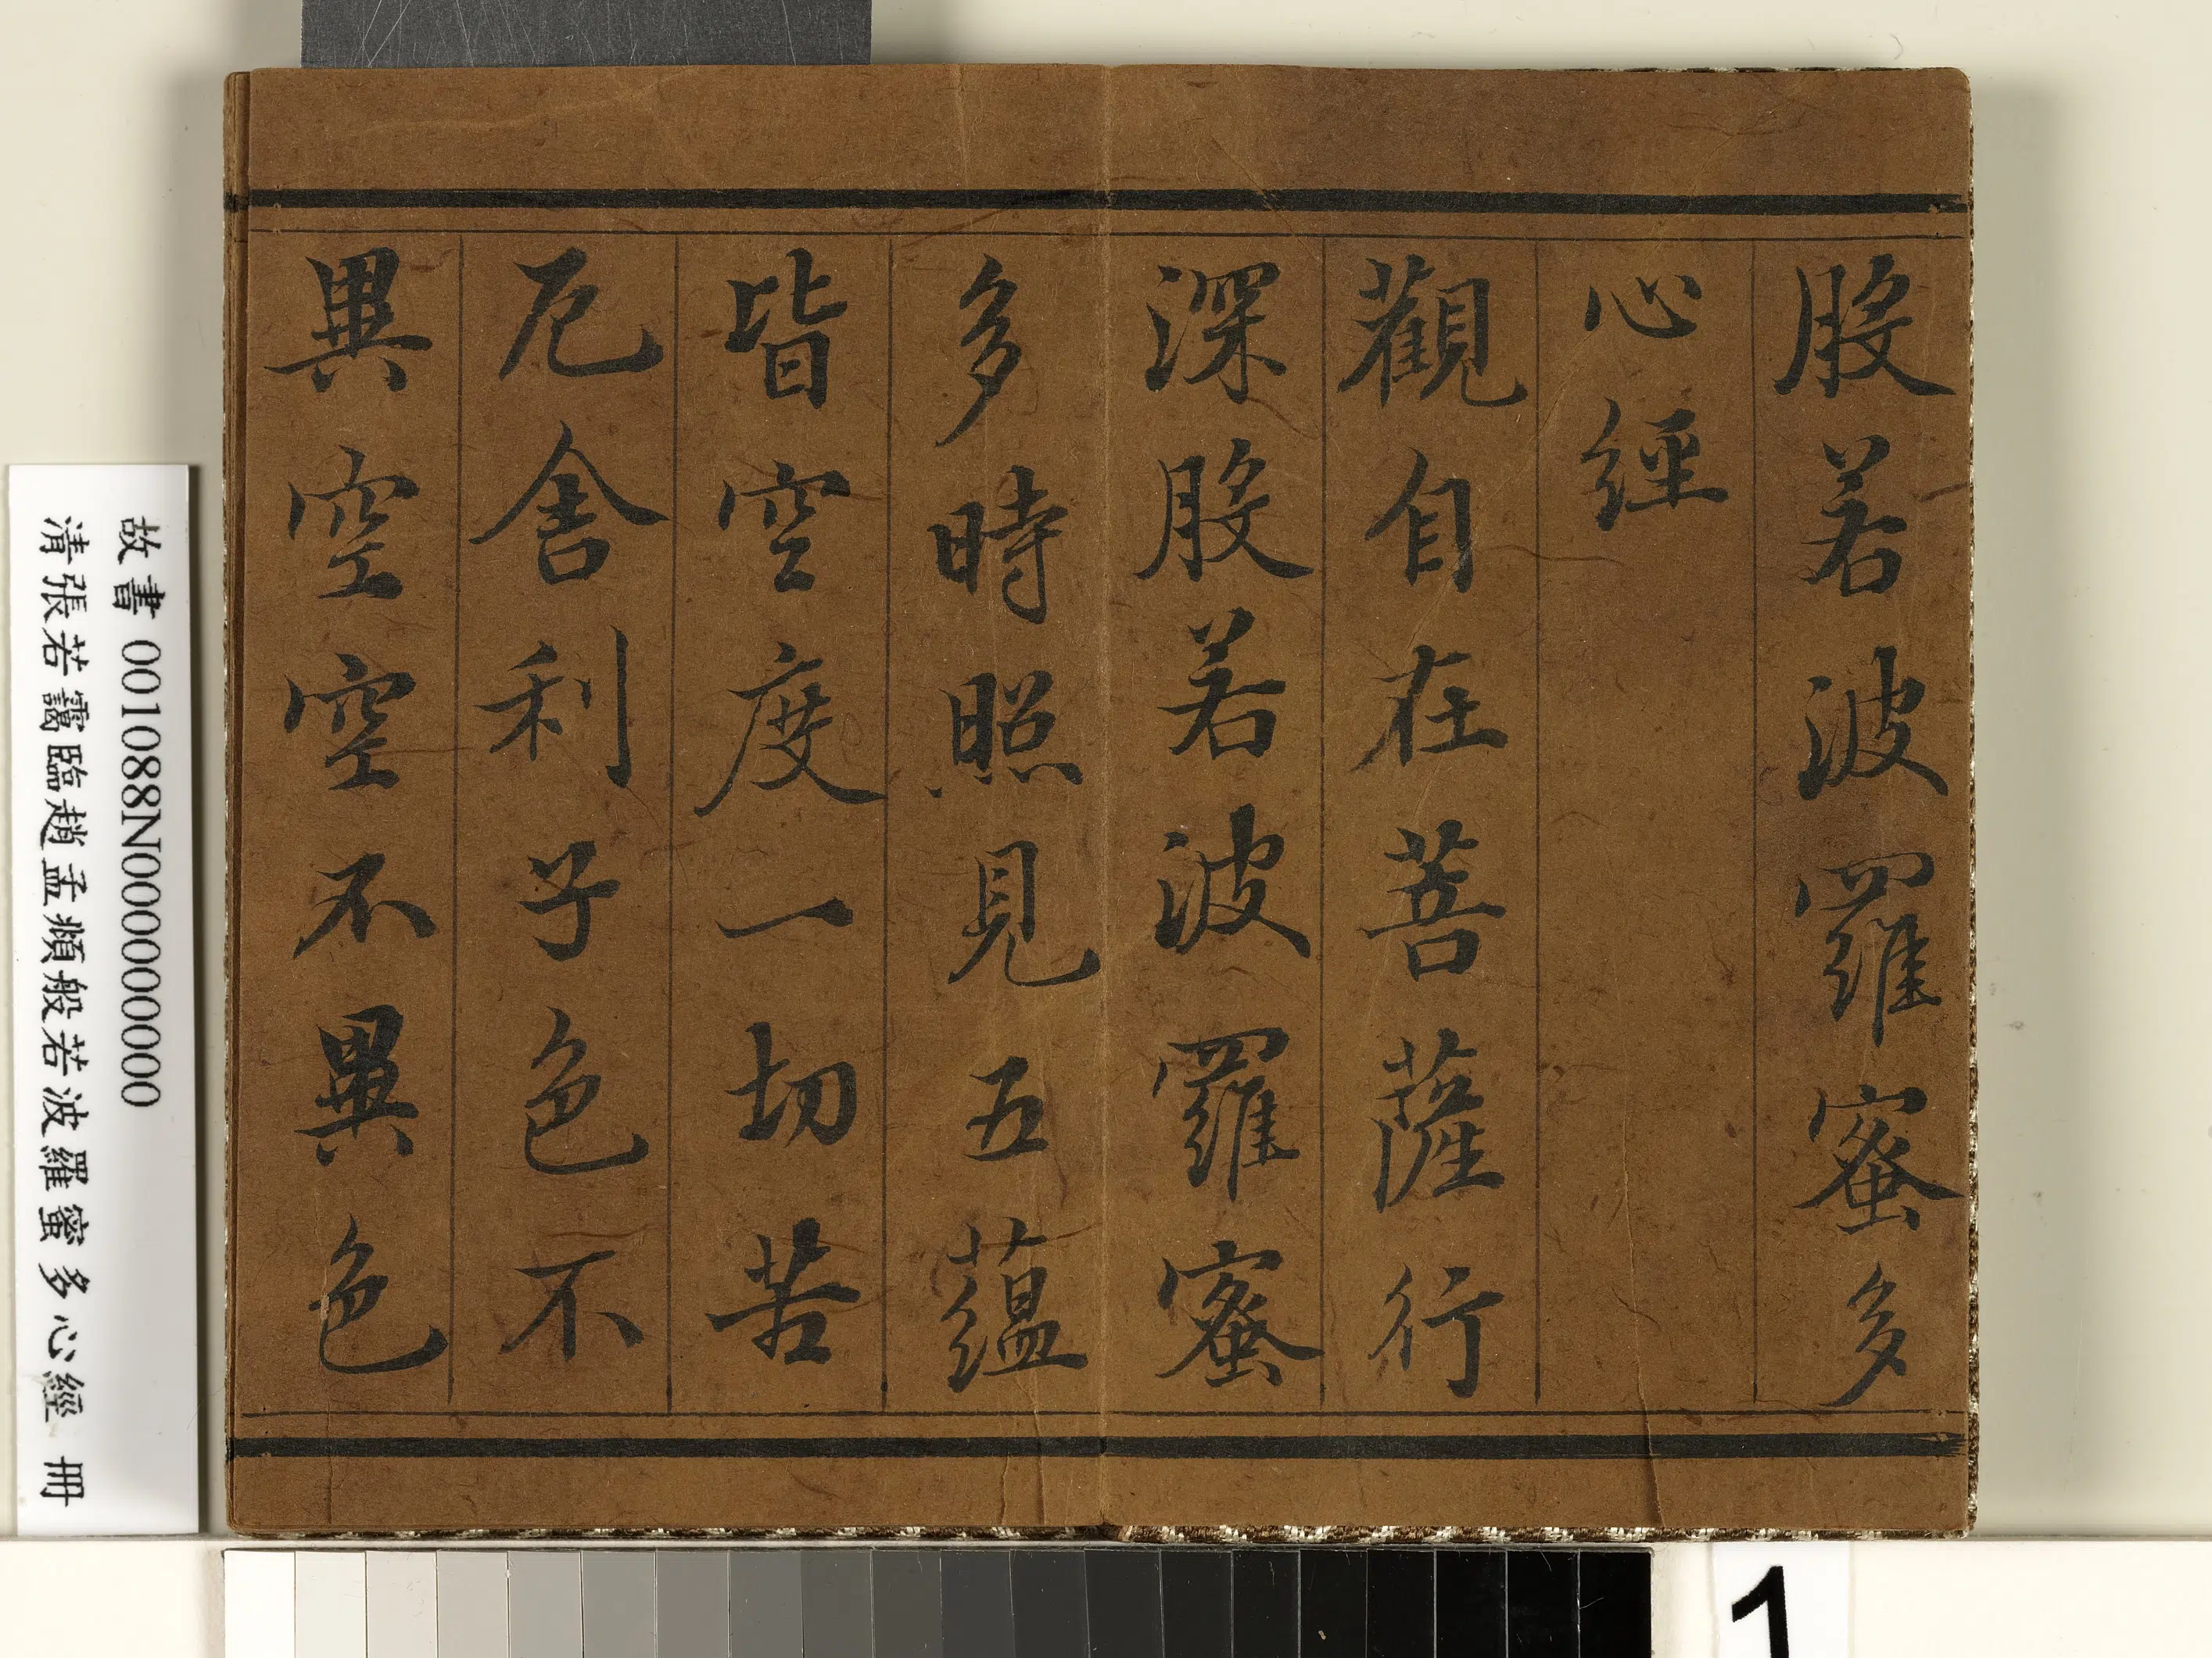 般若波羅蜜多
心經
觀自在菩薩行
深般若波羅蜜
多時照見五蘊
皆空度一切苦
厄舍利子色不
異空空不異色
故書 001088N000000000
清張若靄臨趙孟頫般若波羅蜜多心經 冊
1